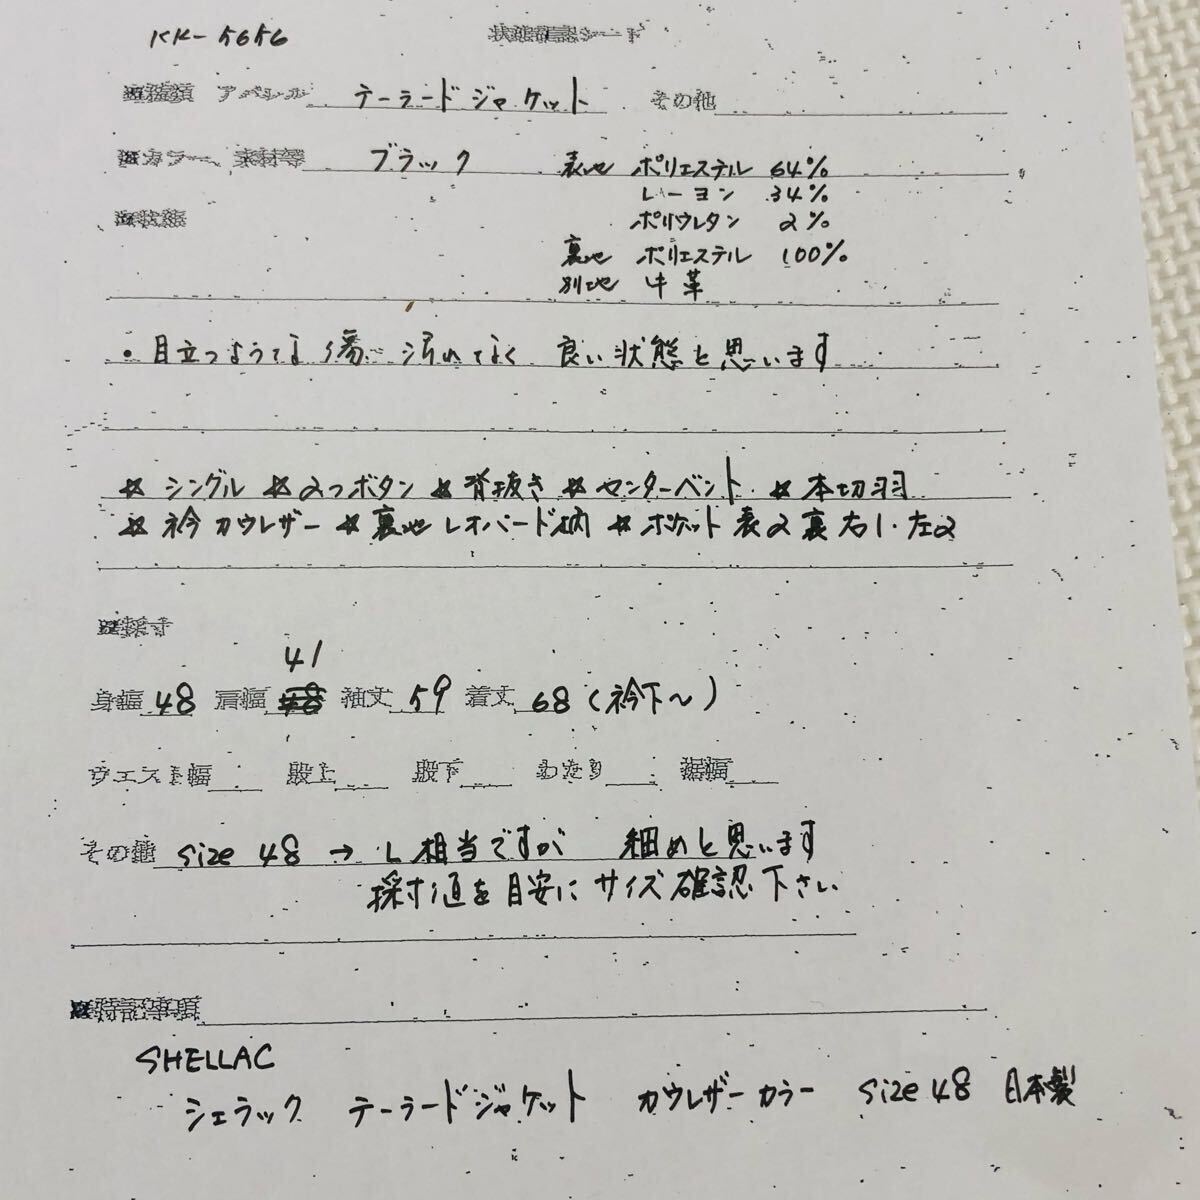 KK-5656 状態確認シート
■種類 アパレル テーラードジャケット その他
■カラー、素材等 ブラック 表地 ポリエステル 64%
レーヨン 34%
■状態 ポリウレタン 2%
裏地 ポリエステル 100%
別地 牛革
・目立つようてな傷、汚れてなく 良い状態と思います
☆シングル ☆2つボタン ☆背抜き ☆センターベント ☆本切羽
☆衿カウレザー ☆裏地レオパード柄 ☆ポケット 表2裏右1・左2
■採寸
41
身幅 48 肩幅 48 袖丈 59 着丈 68 (衿下〜)
ウエスト幅 股上 股下 わたり 裾幅
その他 size 48 → L相当ですが 細めと思います
採寸通を目安にサイズ確認下さい
■特記事項
SHELLAC
シェラック テーラードジャケット カウレザーカラー size 48 日本製